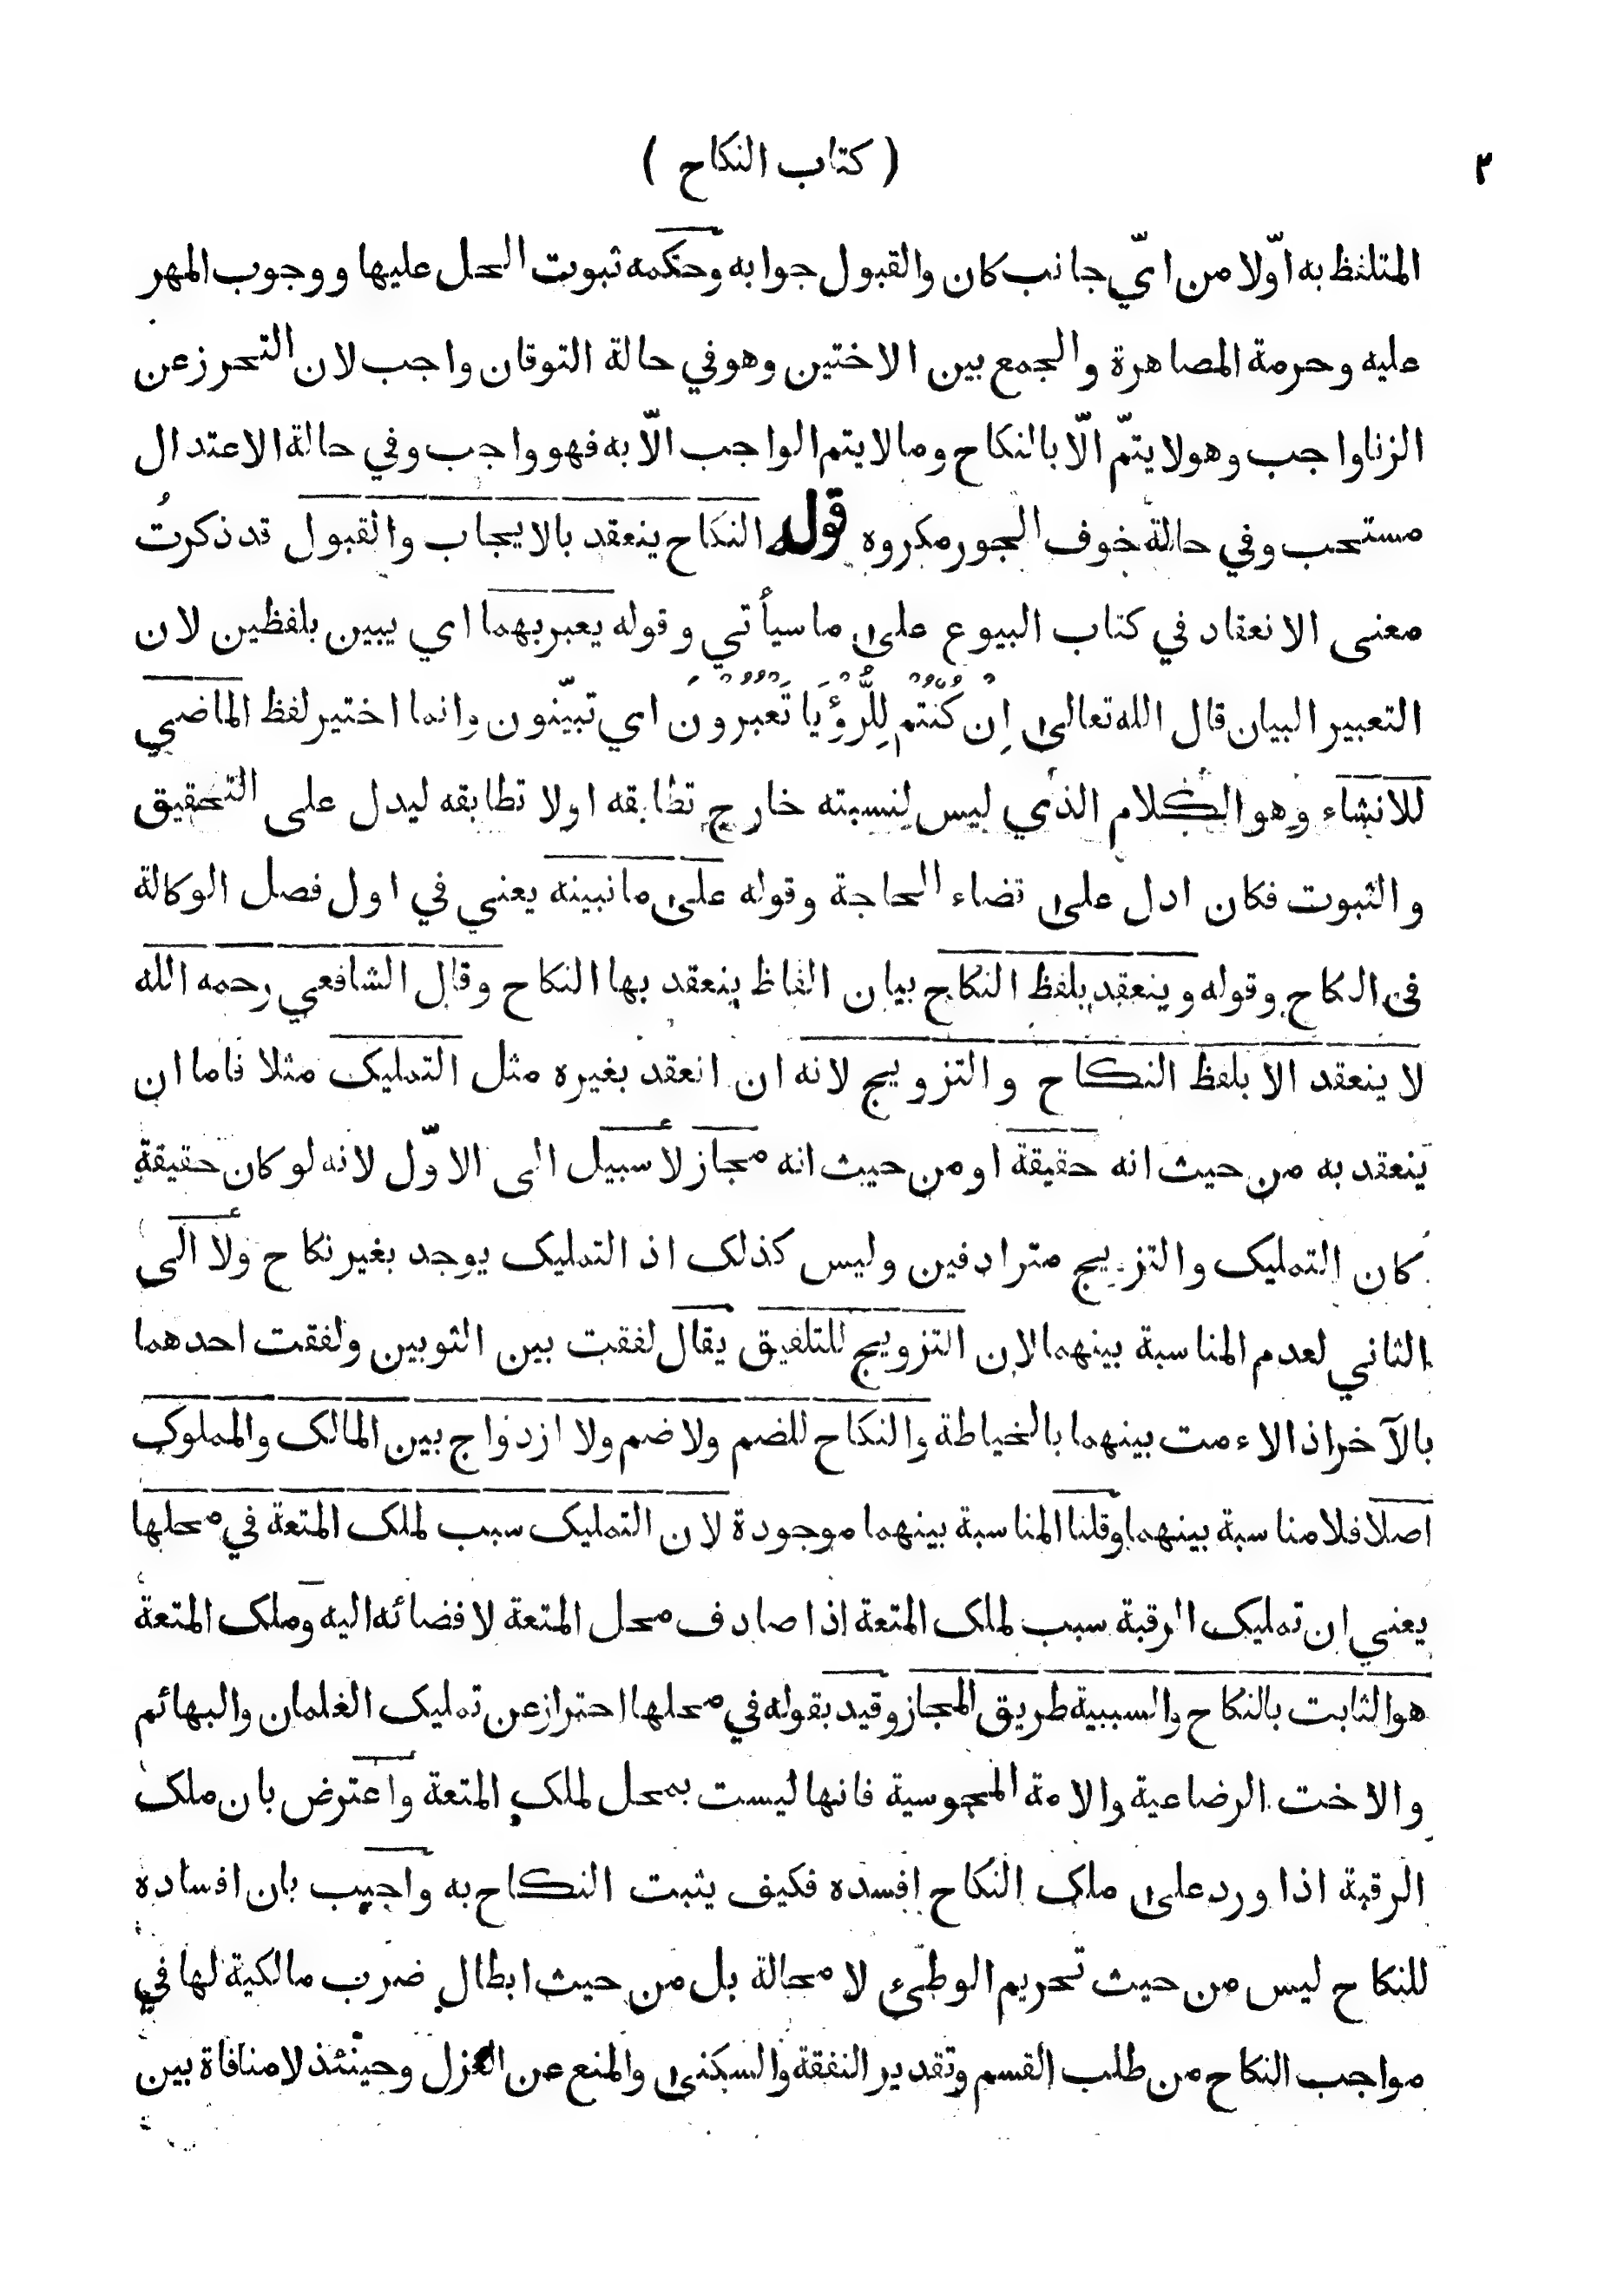 ٢
( كتاب النكاح )
المتلفظ به اوّلا من ايّ جانب كان والقبول جوابه وحكمه ثبوت الحل عليها ووجوب المهر
عليه وحرمة المصاهرة والجمع بين الاختين وهو في حالة التوقان واجب لان التحرز عن
الزنا واجب وهو لا يتمّ الّا بالنكاح وما لا يتم الواجب الّا به فهو واجب وفي حالة الاعتدال
مستحب وفي حالة خوف الجور مكروه قوله النكاح ينعقد بالايجاب والقبول قد ذكرتُ
معنى الانعقاد في كتاب البيوع على ما سيأتي وقوله يعبر بهما اي يبين بلفظين لان
التعبير البيان قال الله تعالى اِنْ كُنْتُمْ لِلرُّؤْيَا تَعْبُرُوْنَ اي تبيّنون وانما اختير لفظ الماضي
للانشاء وهو الكلام الذي ليس لنسبته خارج تطابقه اولا تطابقه ليدل على التحقيق
والثبوت فكان ادل على قضاء الحاجة وقوله على ما نبينه يعني في اول فصل الوكالة
فى النكاح وقوله وينعقد بلفظ النكاح بيان الفاظ ينعقد بها النكاح وقال الشافعي رحمه الله
لا ينعقد الا بلفظ النكاح والتزويج لانه ان انعقد بغيره مثل التمليك مثلا فاما ان
ينعقد به من حيث انه حقيقة او من حيث انه مجاز لا سبيل الى الاوّل لانه لو كان حقيقة
كان التمليك والتزويج مترادفين وليس كذلك اذ التمليك يوجد بغير نكاح ولا الى
الثاني لعدم المناسبة بينهما لان التزويج للتلفيق يقال لفقت بين الثوبين ولفقت احدهما
بالآخر اذا لاءمت بينهما بالخياطة والنكاح للضم ولا ضم ولا ازدواج بين المالك والمملوك
اصلا فلا مناسبة بينهما وقلنا المناسبة بينهما موجودة لان التمليك سبب لملك المتعة في محلها
يعني ان تمليك الرقبة سبب لملك المتعة اذا صادف محل المتعة لافضائه اليه وملك المتعة
هو الثابت بالنكاح والسببية طريق المجاز وقيد بقوله في محلها احتراز عن تمليك الغلمان والبهائم
والاخت الرضاعية والامة المجوسية فانها ليست بمحل لملك المتعة واعترض بان ملك
الرقبة اذا ورد على ملك النكاح افسده فكيف يثبت النكاح به واجيب بان افساده
للنكاح ليس من حيث تحريم الوطئ لا محالة بل من حيث ابطال ضرب مالكية لها في
مواجب النكاح من طلب القسم وتقدير النفقة والسكنى والمنع عن العزل وحينئذ لا منافاة بين